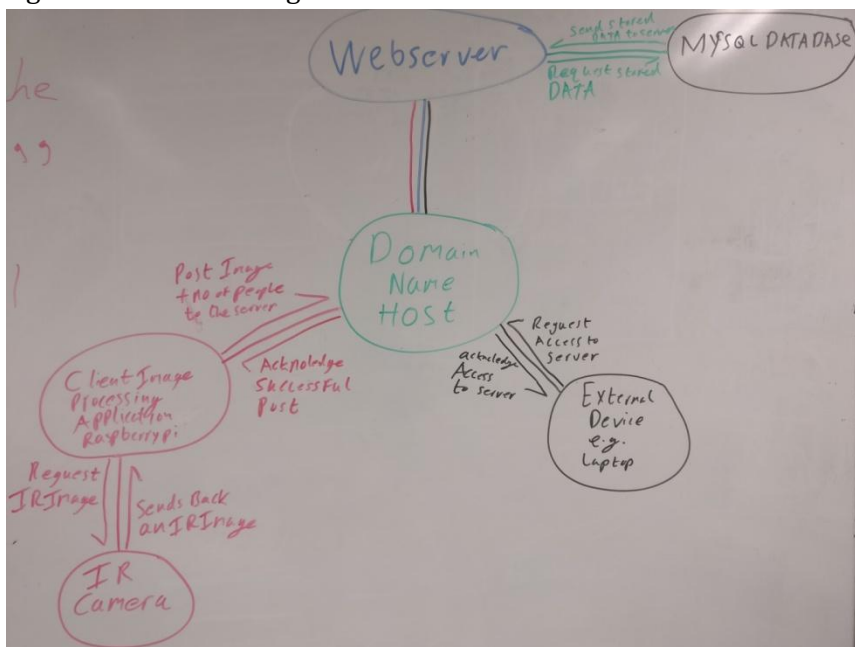 Webserver
Send stored
DATA to server
Request stored
DATA
MYSQL DATADASE
he
Domain
Name
HOST
Post Image
+ no of people
to the server
Acknoledge
Successful
Post
Request
Access to
server
acknoledge
Access
to server
Client Image
Processing
Application
Raspberrypi
External
Device
e.g.
Laptop
Request
IR Image
Sends Back
an IR Image
IR
Camera